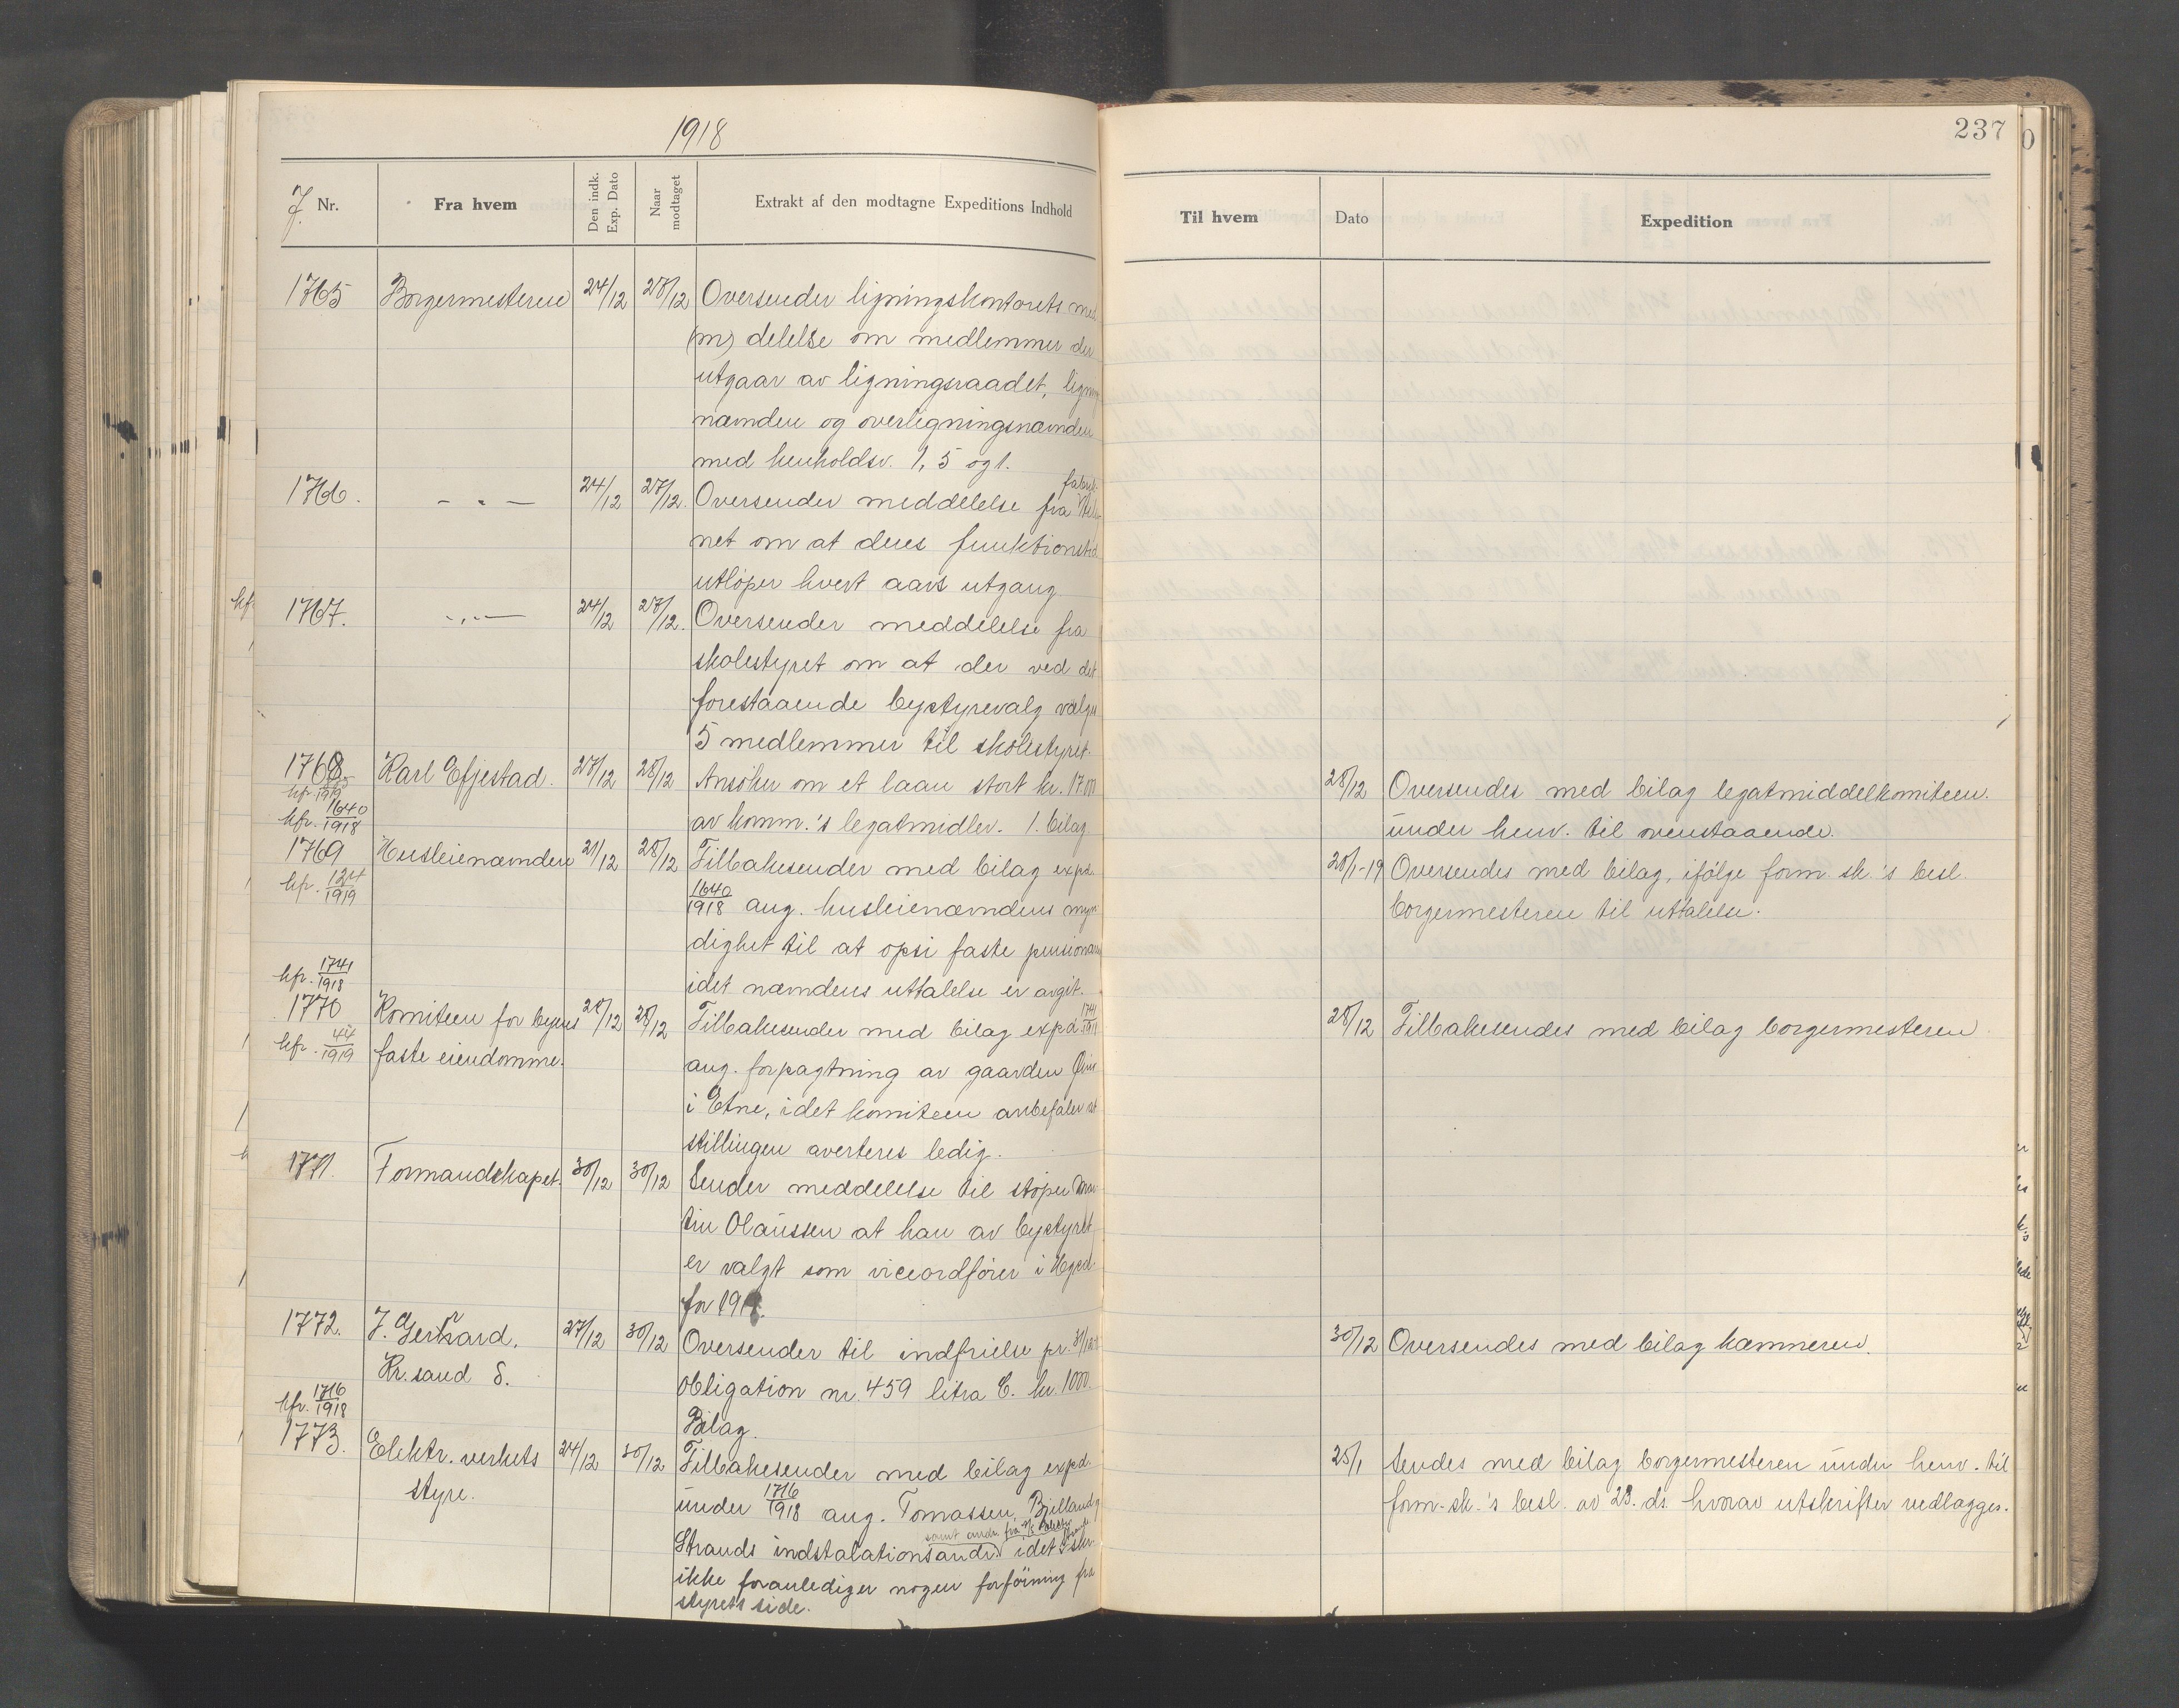 1918
J. Nr.
Fra hvem
Den indk. Exp. Dato
Naar modtaget
Extrakt af den modtagne Expeditions Indhold
1765 Borgermesteren 24/12 28/12 Oversender ligningskontorets med
(m) delelse om medlemmer der
utgaar av ligningsraadet, lignings
nævnden og overligningsnævnden
med henholdsv. 1, 5 og 1.
1766. - „ - 24/12 27/12. Oversender meddelelse fra
net om at deres funktionstid
utløper hvert aars utgang.
1767. - „ - 24/12 27/12. Oversender meddelelse fra
skolestyret om at der ved det
forestaaende bystyrevalg vælges
5 medlemmer til skolestyret.
1768. Karl Efjestad. 27/12 28/12 Ansøker om et laan stort kr. 1700
kfr. 1640/1918 av komm.'s legatmidler. 1. bilag
1769 Husleienævnden 21/12 28/12 Tilbakesender med bilag expd.
kfr. 124/1919 1640/1918 ang. husleienævndens myn
dighet til at opsi faste pensionærer
kfr. 1741/1918 idet nævndens uttalelse er avgit.
1770 Komiteen for byens 28/12 28/12 Tilbakesender med bilag expd. 1741/1918
kfr. 44/1919 faste eiendomme. ang. forpagtning av gaarden
i Etne, idet komiteen anbefaler at
stillingen averteres ledig.
1771. Formandskapet. 30/12 30/12 Sender meddelelse til støper Mar
tin Olaussen at han av bystyret
er valgt som viceordfører i
for 191
1772. J. Gerrard, 27/12 30/12 Oversender til indfrielse pr. 31/12
Kr.sand S. obligation nr. 459 litra C. kr. 1000.
kfr. 1716/1918 Bilag.
1773. Elektr. verkets 24/12 30/12 Tilbakesender med bilag expd.
styre. under 1716/1918 ang. Tomassen, Bjelland og
samt andr. fra
Strands indstalationsandr. idet
ikke foranlediger nogen forføining fra
styrets side.
237
Til hvem
Dato
Expedition
28/12 Oversendes med bilag legatmiddelkomiteen.
under henv. til ovenstaaende.
28/1-19 Oversendes med bilag, ifølge form. sk.'s besl.
borgermesteren til uttalelse.
28/12 Tilbakesendes med bilag borgermesteren.
30/12 Oversendes med bilag kæmneren.
25/1 Sendes med bilag borgermesteren under henv. til
form.sk.'s besl. av 23. ds. hvorav utskrifter vedlægges.